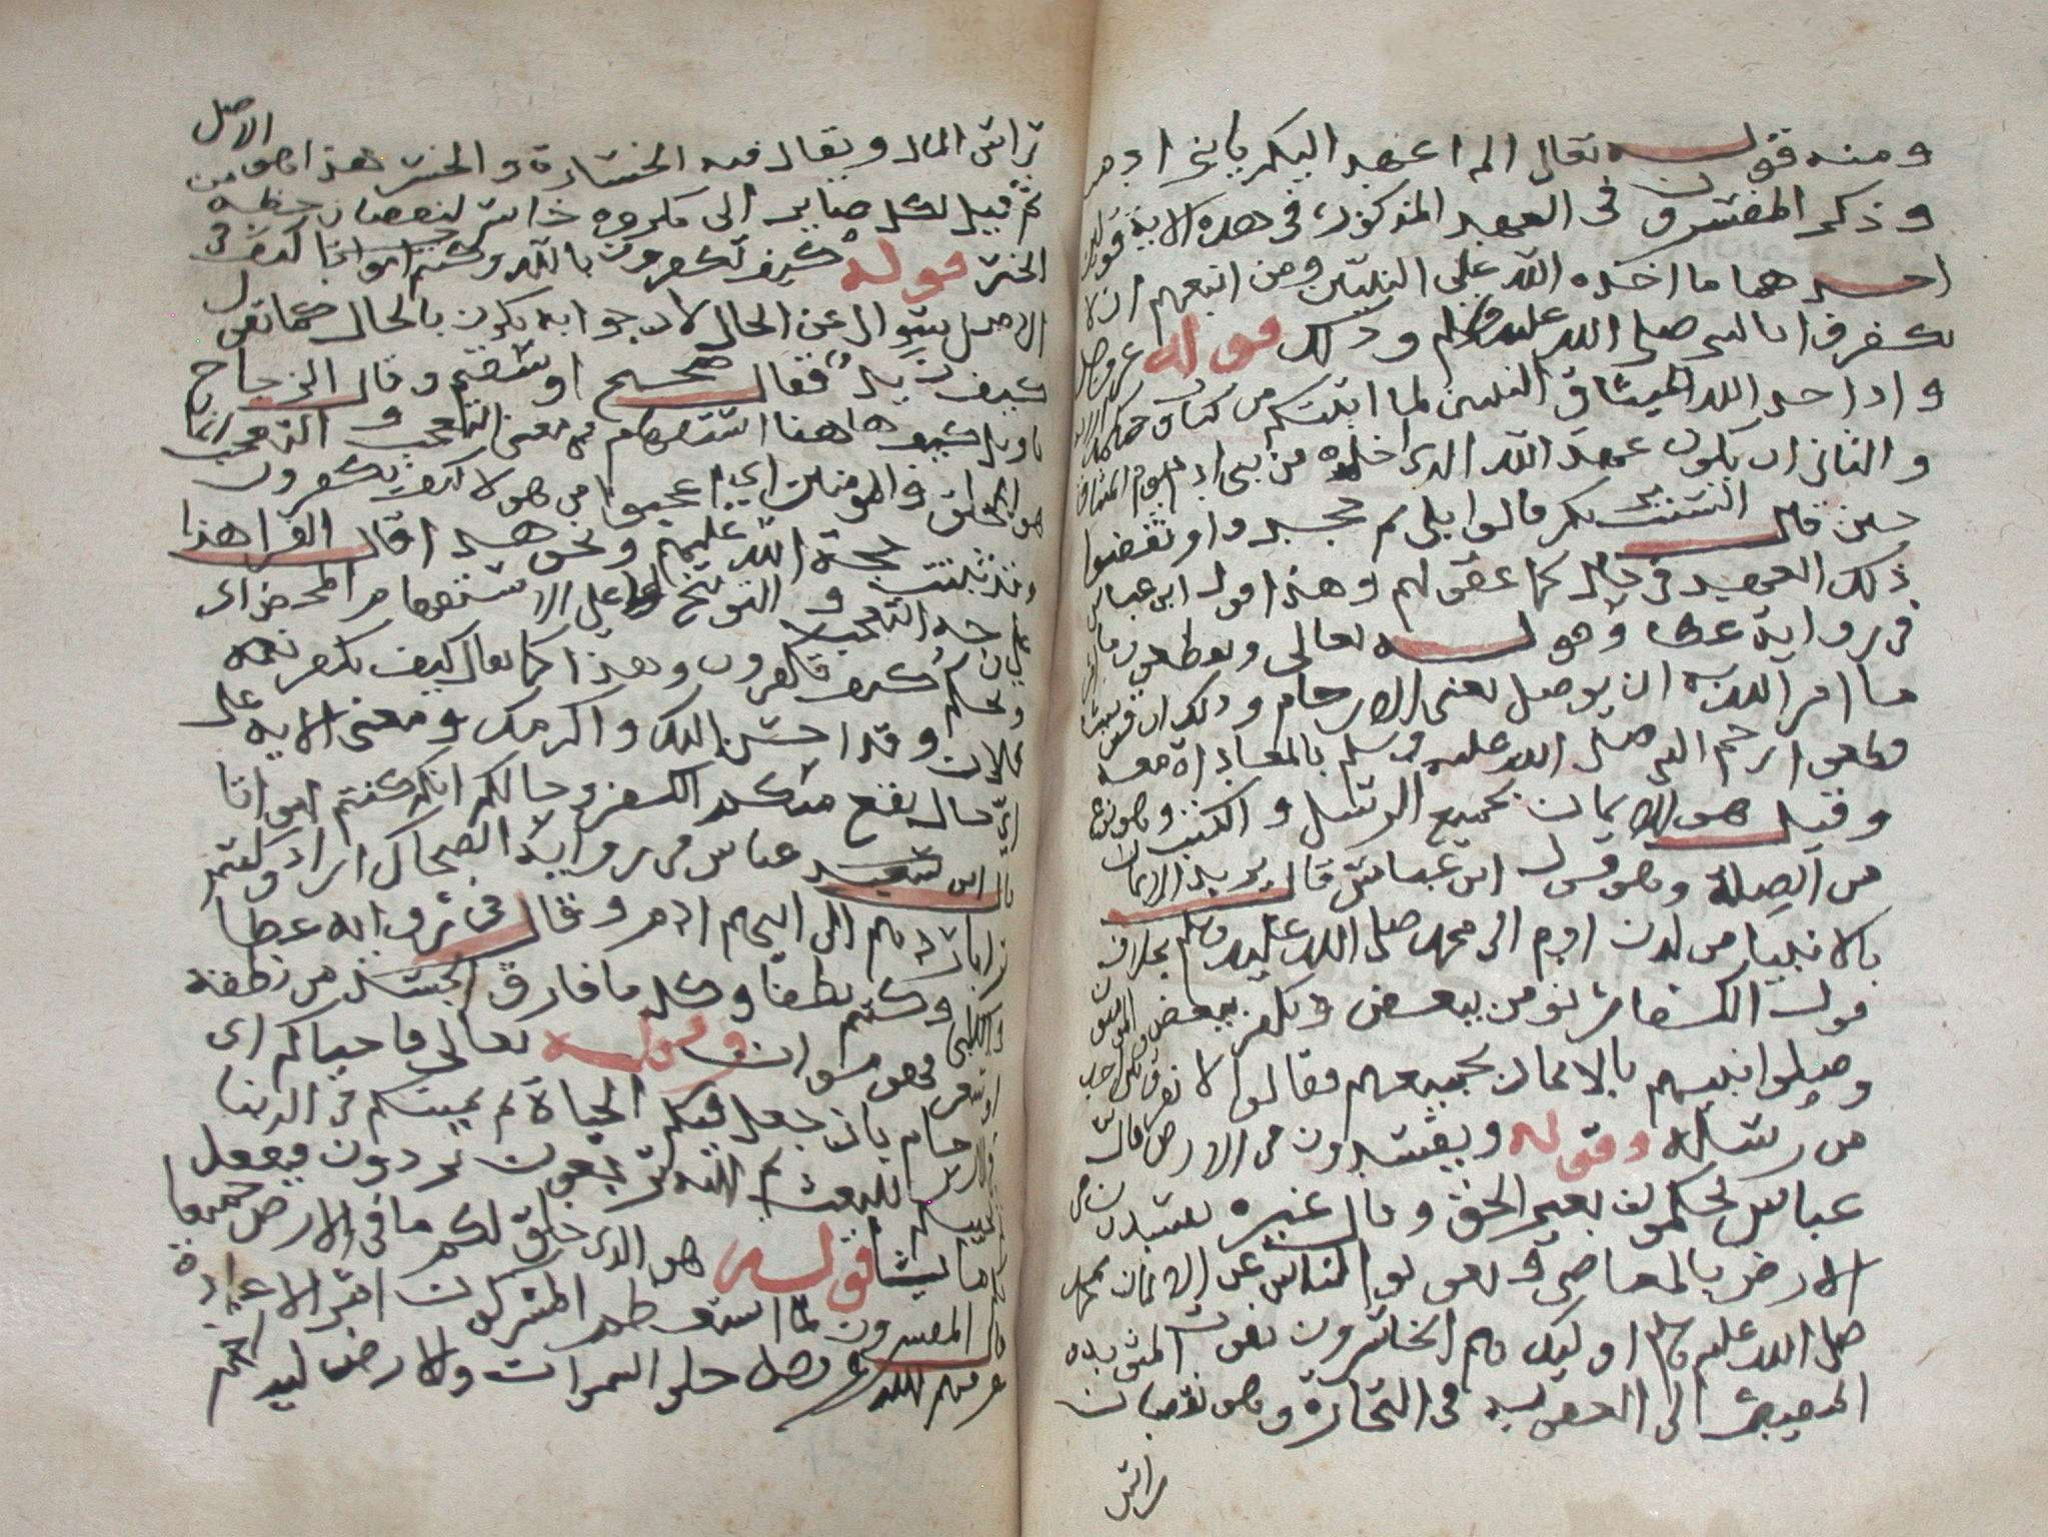 ومنه قوله تعالى الم اعهد اليكم يا بني ادم
وذكر المفسرون في العهد المذكور في هذه الاية قولين
احدهما ما اخذه الله على النبيين ومن اتبعهم ان لا
يكفروا بالنبي صلى الله عليه وسلم وذلك قوله عز وجل
واذ اخذ الله ميثاق النبيين لما اتيتكم من كتاب وحكمة الاية
والثاني ان يكون عهد الله الذي اخذه من بني ادم يوم الميثاق
حين قال الست بربكم قالوا بلى ثم جحدوا ونقضوا
ذلك العهد في حال كما عقولهم وهذا قول ابن عباس
في رواية عطا وهو قوله تعالى ويقطعون ما
ما امر الله به ان يوصل يعني الارحام وذلك ان قريشا
قطعوا رحم النبي صلى الله عليه وسلم بالمعاداة معه
وقيل هو الايمان بجميع الرسل والكتب وهو نوع
من الصلة وهو قول ابن عباس قال يريد الايمان
بالانبيا من لدن ادم الى محمد صلى الله عليه وسلم بخلاف
قول الكفار نؤمن ببعض ونكفر ببعض المؤمنون
وصلوا بينهم بالايمان بجميعهم فقالوا لا نفرق بين احد
من رسله وقوله ويفسدون في الارض قال
عباس يحكمون بغير الحق وقال غيره يفسدون في
الارض بالمعاصي وتعويق الناس عن الايمان بمحمد
صلى الله عليه وسلم اوليك هم الخاسرون بفوت المثوبة
المصير الى العقوبة في التجارة وهو نقصان
راس
راس المال ويقال فيه الخسارة والخسر هذا هو الاصل
ثم قيل لكل صاير الى مكروه خاسر لنقصان حظه من
الخير قوله كيف تكفرون بالله وكنتم امواتا كيف في
الاصل سوال عن الحال لان جوابه يكون بالحال كما تقول
كيف زيد فقال صحيح او سقيم وقال الزجاج
تاويل كيف هاهنا استفهام في معنى التعجب والتعجب انما
هو للخلق والمومنين اي اعجبوا من هولا كيف يكفرون
وقد ثبتت حجة الله عليهم ونحو هذا قال الفرا هذا
على جهة التعجب والتوبيخ لا على الاستفهام المحض اي
ويحكم كيف تكفرون وهذا كما يقال كيف تكفر نعمة
فلان وقد احسن اليك واكرمك ومعنى الاية على
اي حال يقع منكم الكفر وحالكم انكم كنتم امواتا
قال ابن عباس في رواية الضحاك اراد وكنتم
ترابا ردهم الى ابيهم ادم وقال في رواية عطا
والكلبي وكنتم نطفا وكل ما فارق الجسد من نطفة
او شعر فهو موات وقوله تعالى فاحياكم اي
في الارحام بان جعل فيكم الحياة ثم يميتكم في الدنيا
ثم يحييكم للبعث ثم اليه ترجعون تردون فيفعل
بكم ما يشا قوله هو الذي خلق لكم ما في الارض جميعا
قال المفسرون لما استعظم المشركون امر الاعادة
عرفهم الله عز وجل خلق السموات والارض ليدلهم